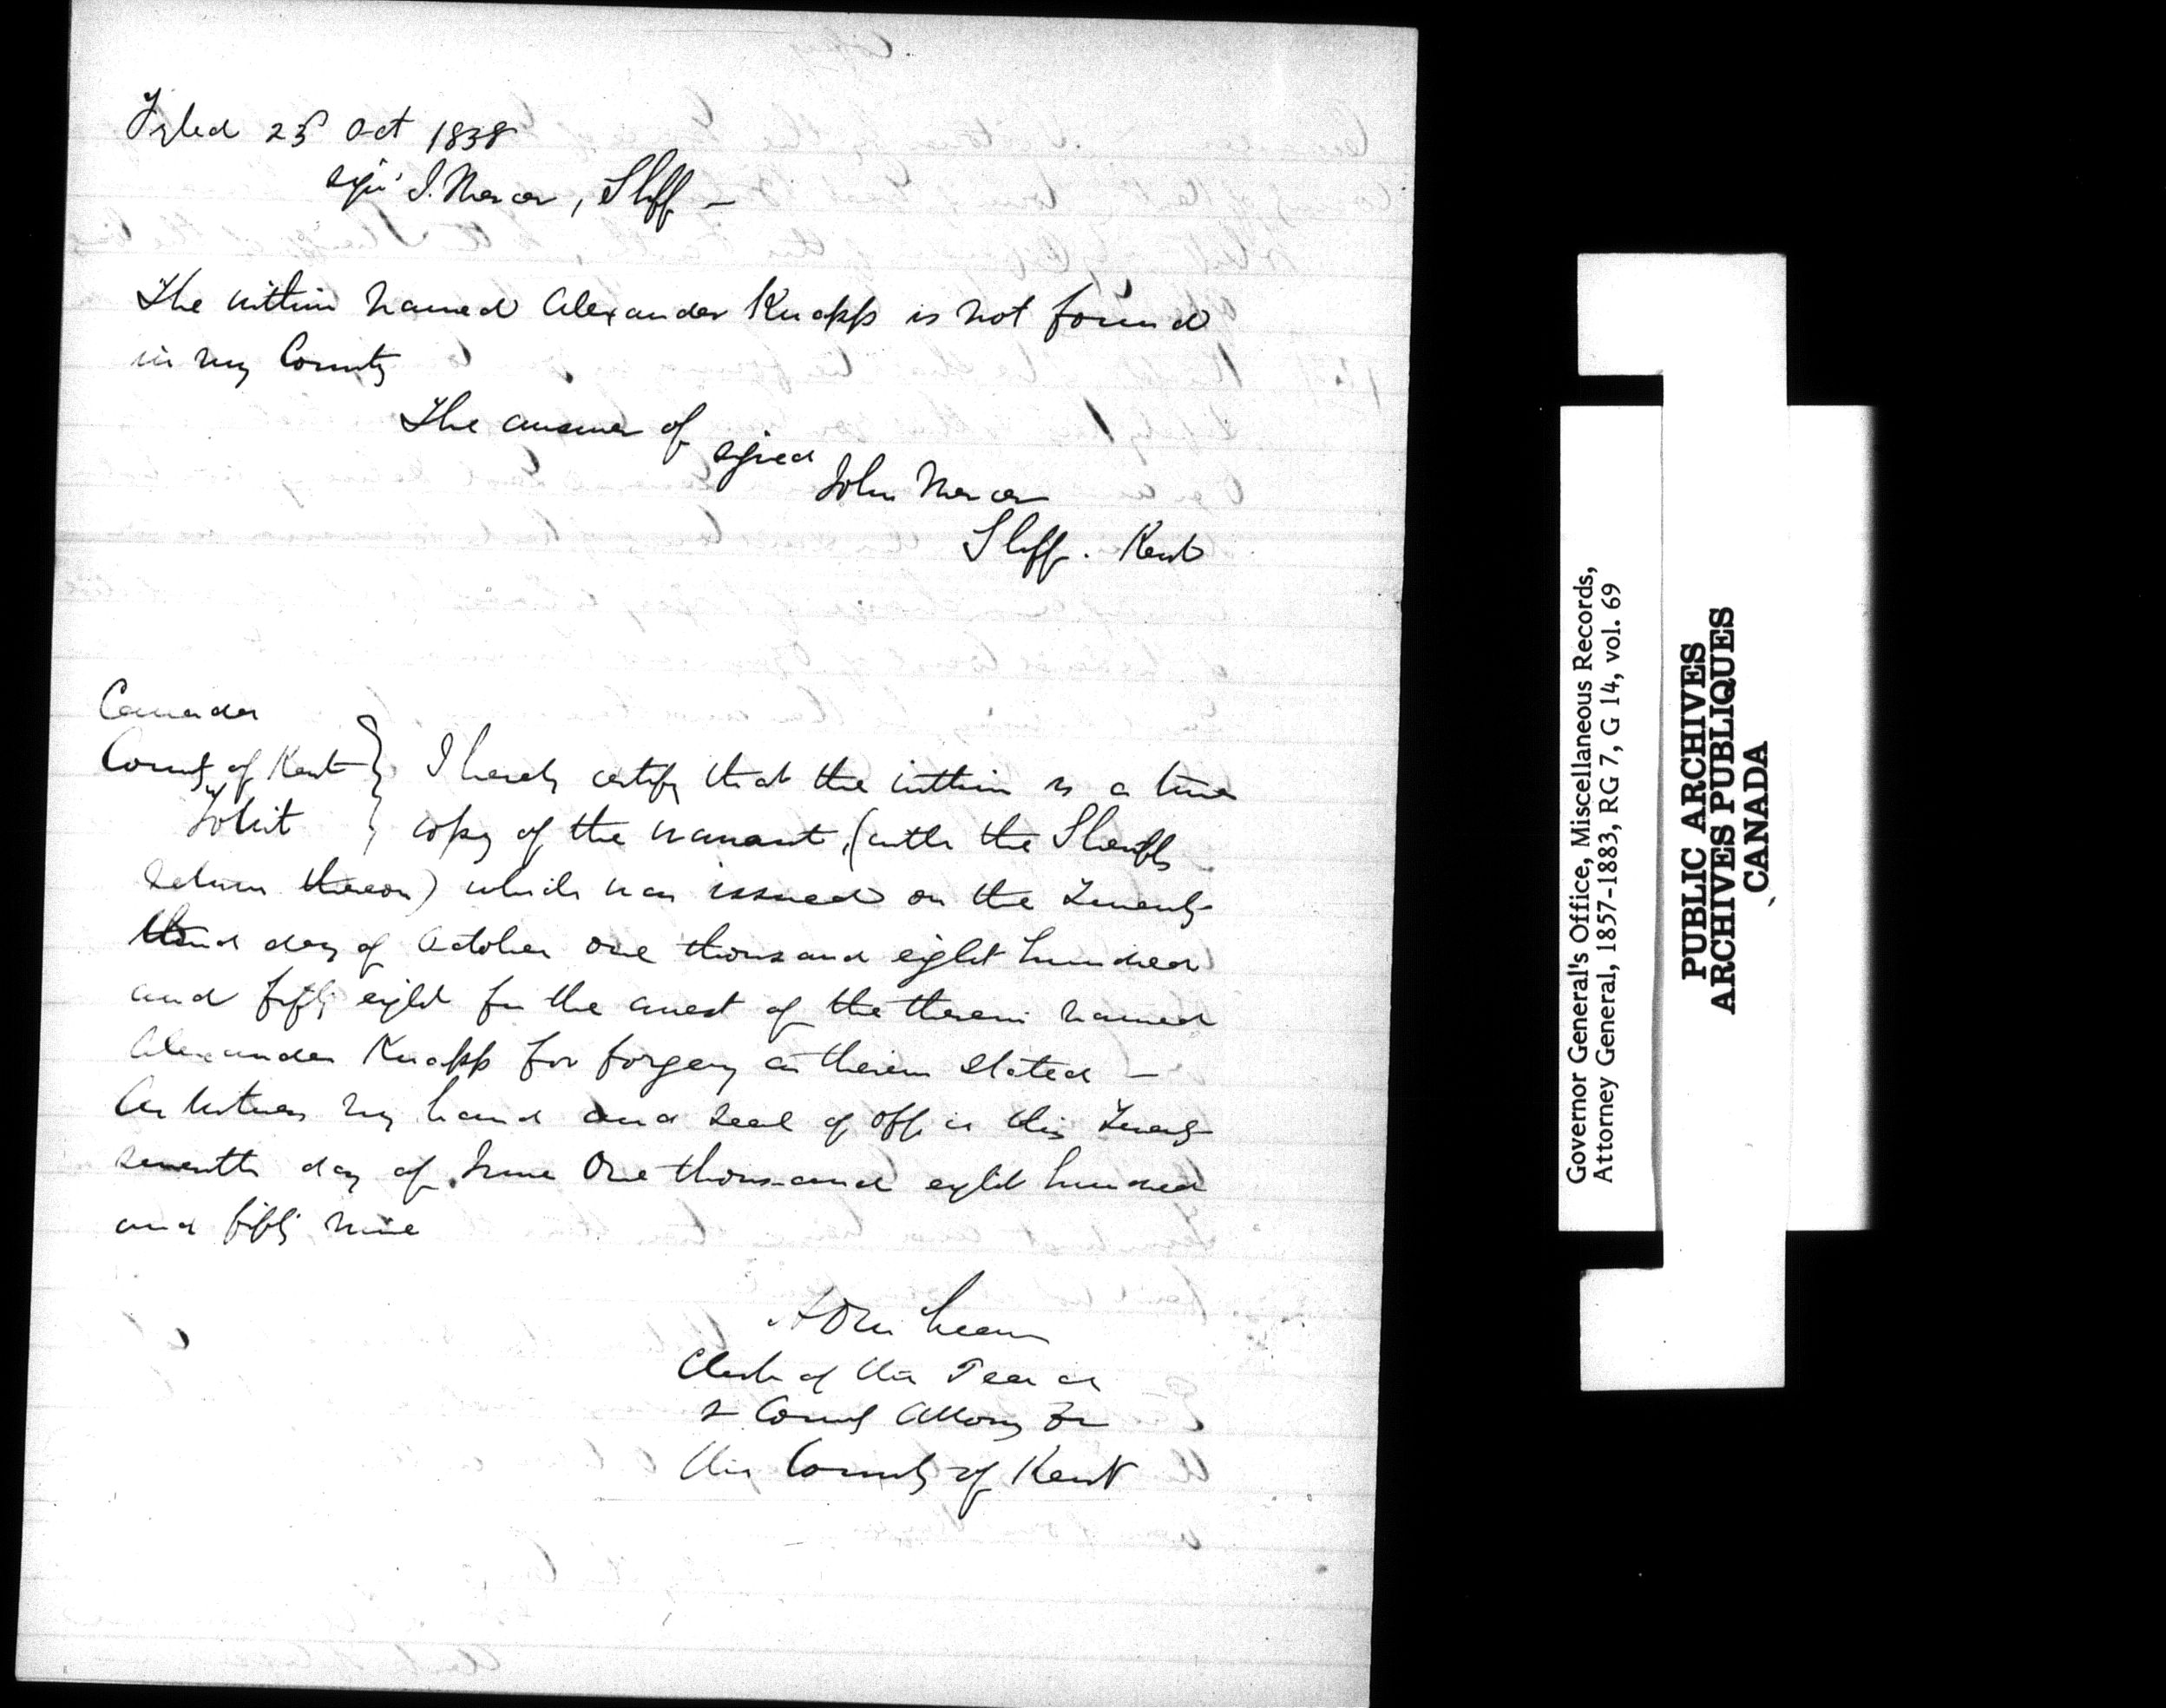 Filed 25 Oct 1858
sign' J. Mercer, Shff –
The within named Alexander Knapp is not found
in my County
The answer of
signed
John Mercer
Shff. Kent
Canada
County of Kent } I hereby certify that the within is a true
To Wit } copy of the warrant, (with the Sheriffs
return thereon) which was issued on the Twenty
third day of October one thousand eight hundred
and fifty eight for the arrest of the therein named
Alexander Knapp for forgery as therein stated –
As witness my hand and seal of office this Twenty
seventh day of June One thousand eight hundred
and fifty nine
Clerk of the Peace
& County Attorny for
the County of Kent
Governor General's Office, Miscellaneous Records,
Attorney General, 1857-1883, RG 7, G 14, vol. 69
PUBLIC ARCHIVES
ARCHIVES PUBLIQUES
CANADA